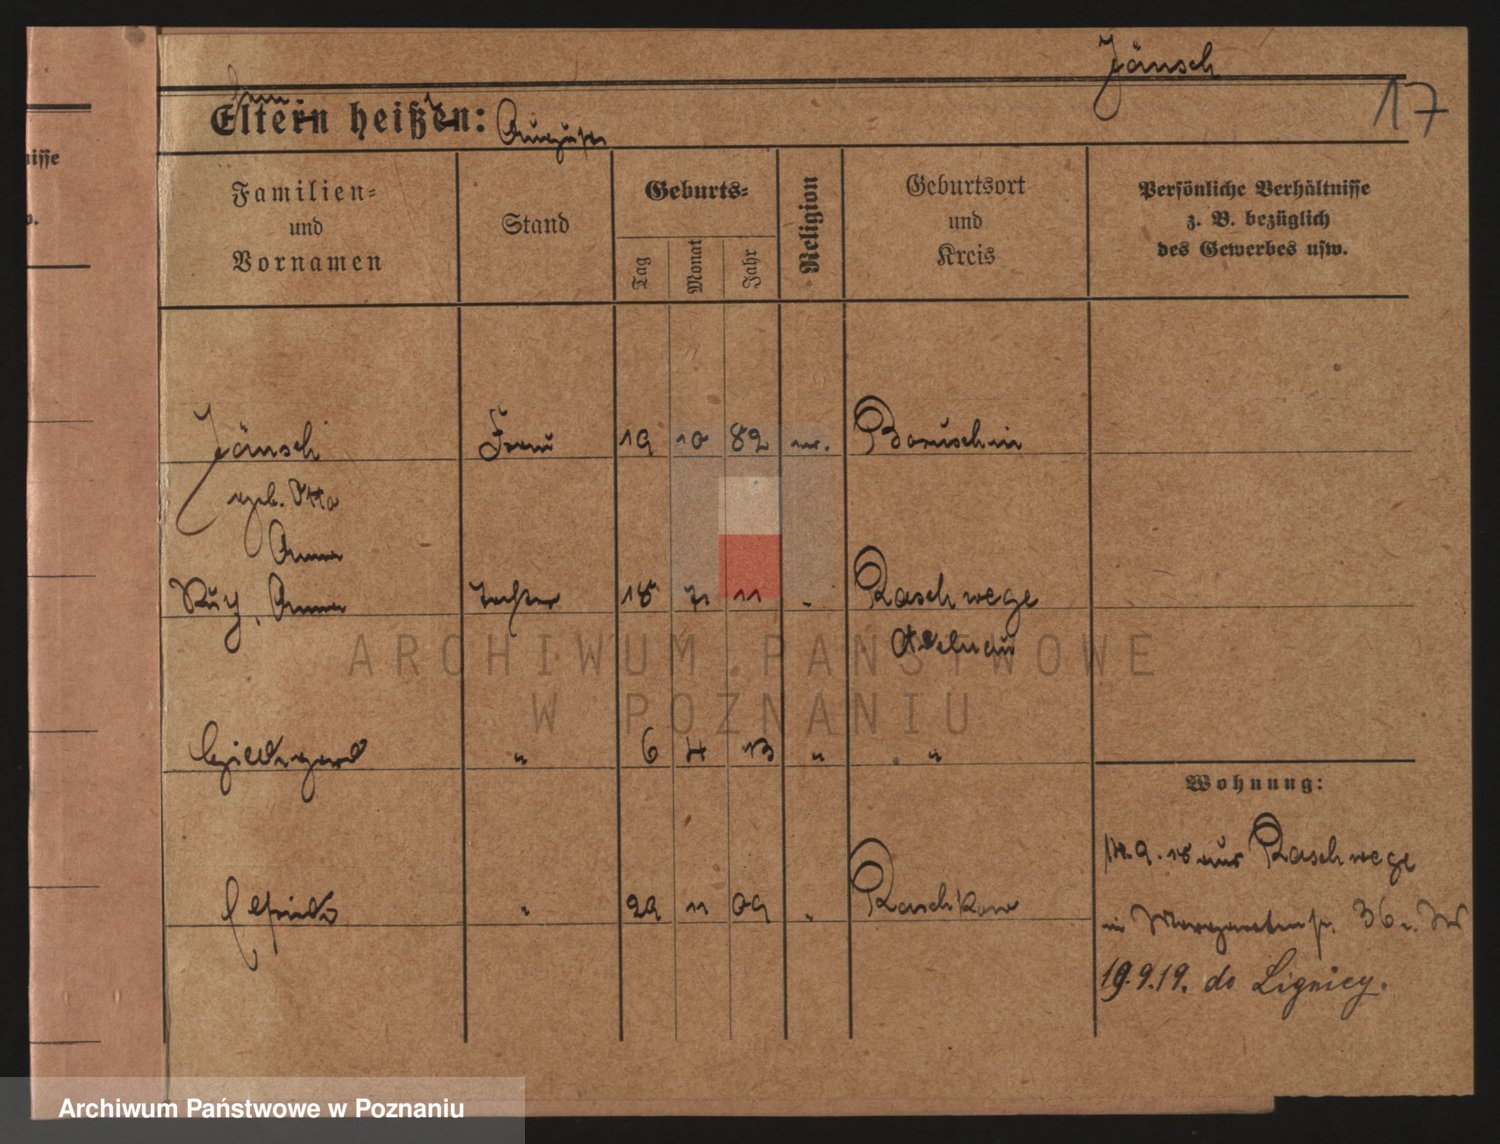 Jänsch
17
Eltern heißen: August
isse
w.
Familien-
und
Vornamen
Stand
Geburts-
Tag
Monat
Jahr
Religion
Geburtsort
und
Kreis
Persönliche Verhältnisse
z. B. bezüglich
des Gewerbes usw.
Jänsch Frau 19 10 82 Boruschin
geb. Otto
Anna
Anna 18 11 Raschwege
Adelnau
Hildegard " 6 4 13 " "
Elfriede " 29 11 09 " Raschkow
Wohnung:
18 aus Raschwege
in Margaretenstr. 36
19.9.19. do Lignicy.
ARCHIWUM PAŃSTWOWE
W POZNANIU
Archiwum Państwowe w Poznaniu